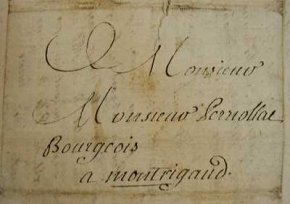 A Monsieur
Monsieur Pernollat
Bourgeois
a montrigaud.